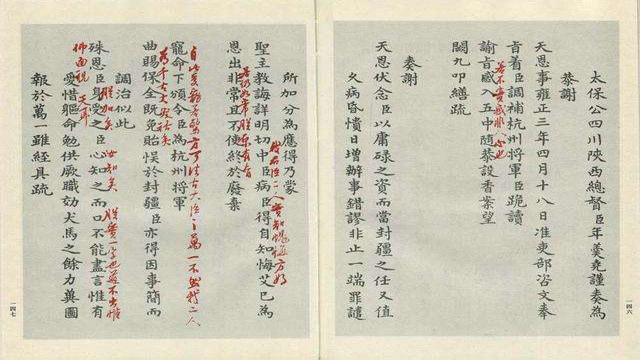 太保公四川陝西總督臣年羹堯謹奏為
恭謝
天恩事雍正三年四月十八日准吏部咨文奉
旨着臣調補杭州將軍臣跪讀
若不實感非人心也
諭旨感入五中隨恭設香案望
闕九叩繕疏
奏謝
天恩伏念臣以庸碌之資而當封疆之任又值
久病昏憒日增辦事錯謬非止一端罪譴
一四六
所加分為應得乃蒙
我君臣二人實知愧悔方好
聖主教誨詳明切中臣病臣得自知悔艾已為
恩出非常且不使終於廢棄
寵命下頒令臣為杭州將軍
曲賜保全既免貽悞於封疆臣亦得因事簡而
調治似此
殊恩臣身受之臣心知之而口不能盡言惟有
愛惜軀命勉供厥職効犬馬之餘力冀圖
報於萬一雖經具疏
一四七